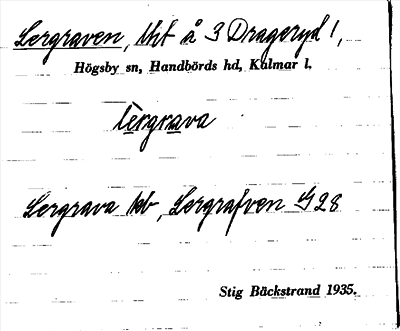 Lergraven, tht å 3 Drageryd 1,
Högsby sn, Handbörds hd, Kalmar l.
lèrgrava
Lergrava kb, Lergrafven G 28
Stig Bäckstrand 1935.